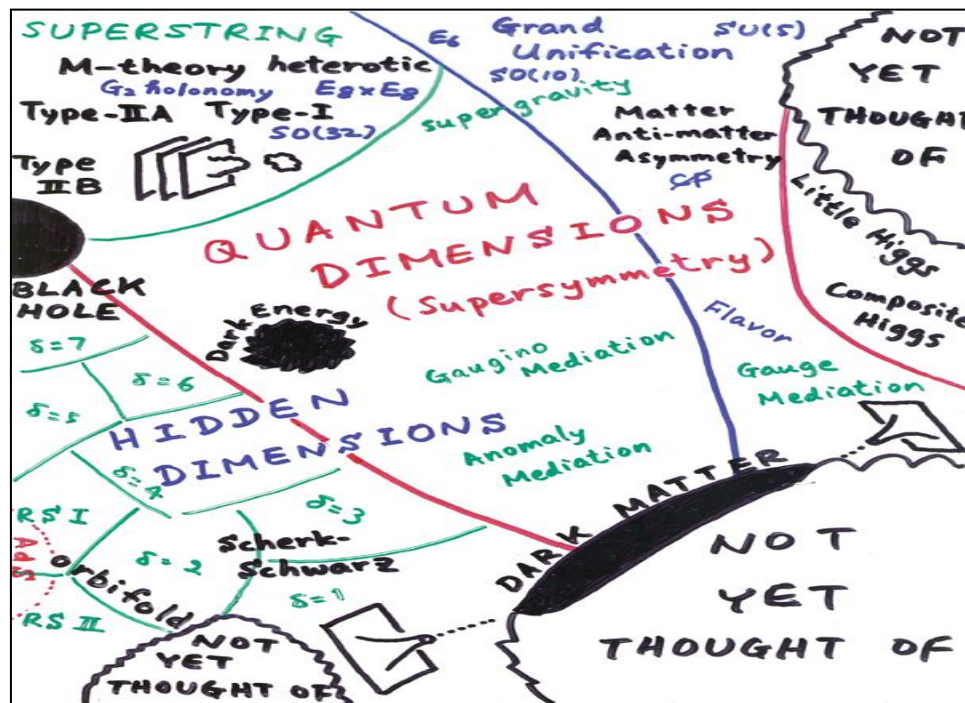 SUPERSTRING
M-theory heterotic
G₂ holonomy E₈xE₈
Type-IIA Type-I
SO(32)
Type
IIB
E₆
Grand
Unification
SU(5)
SO(10)
supergravity
Matter
Anti-matter
Asymmetry
CP
NOT
YET
THOUGHT
OF
Little Higgs
Composite
Higgs
QUANTUM
DIMENSIONS
(supersymmetry)
BLACK
HOLE
Dark Energy
Flavor
Gaugino
Mediation
Gauge
Mediation
δ=7
δ=6
δ=5
HIDDEN
DIMENSIONS
Anomaly
Mediation
δ=4
δ=3
RS I
AdS
Orbifold
δ=2
Scherk-
Schwarz
RS II
δ=1
DARK MATTER
NOT
YET
THOUGHT OF
NOT
YET
THOUGHT OF